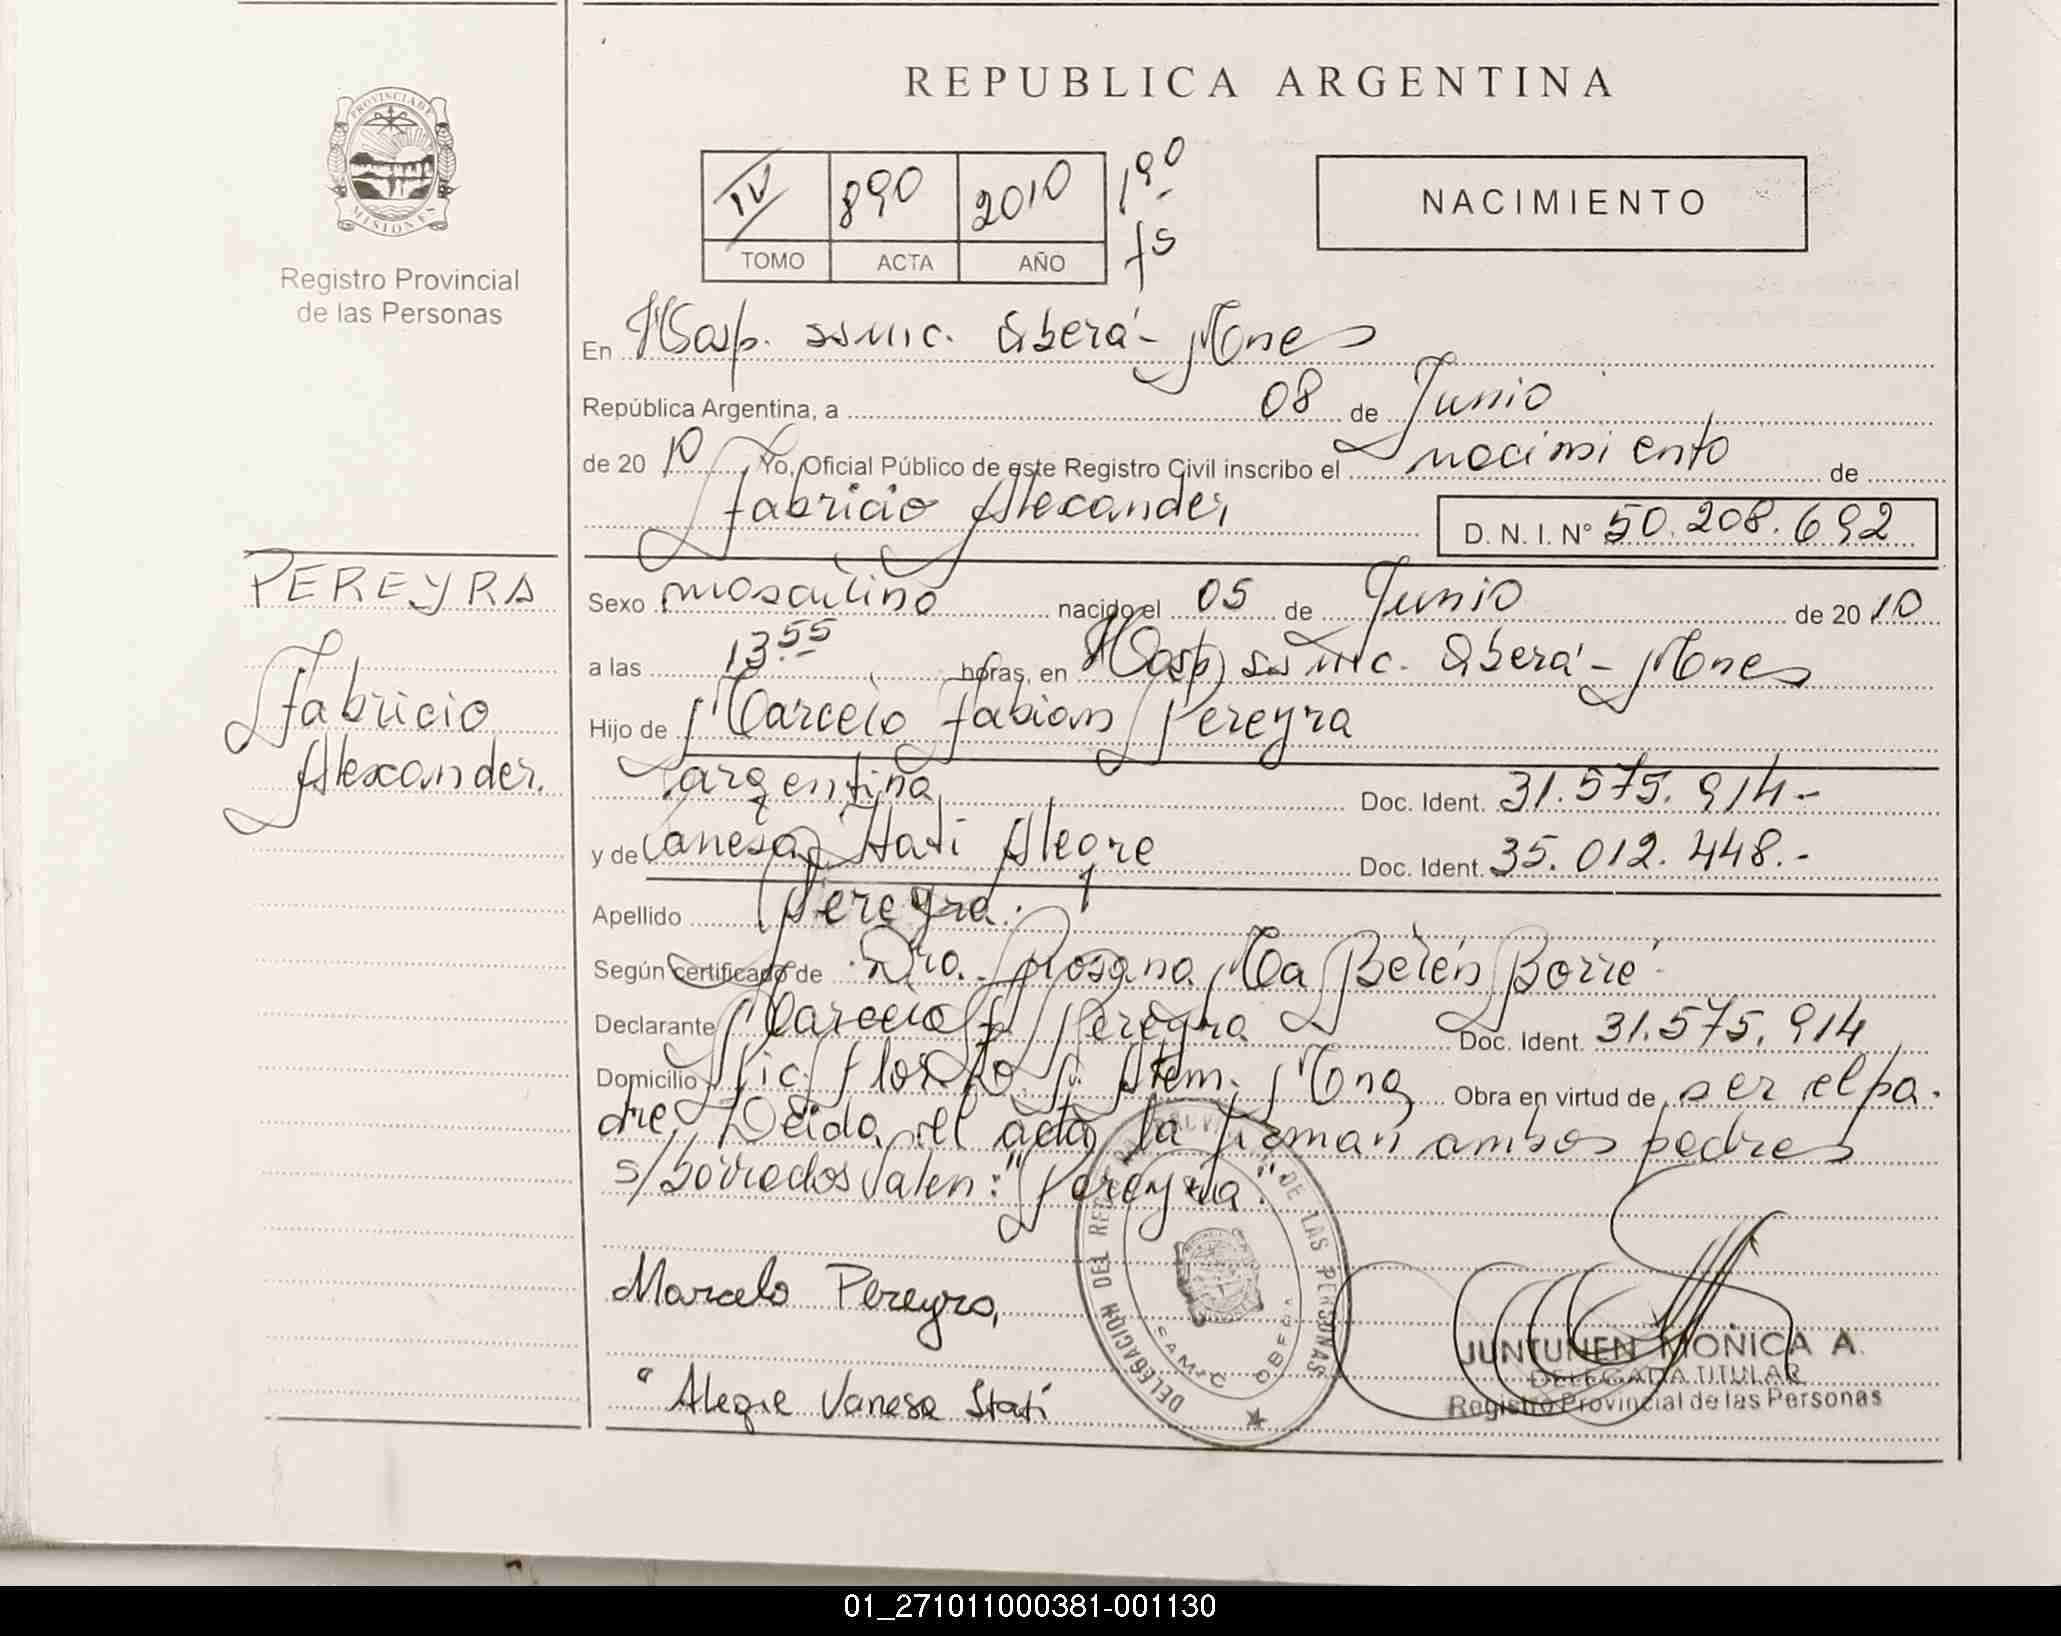 REPUBLICA ARGENTINA
PROVINCIA DE MISIONES
Registro Provincial
de las Personas
IV 890 2010 190
TOMO ACTA AÑO fs
NACIMIENTO
En Hosp. SAMIC. Oberá - Mnes
República Argentina, a 08 de Junio
de 2010 Yo, Oficial Público de este Registro Civil inscribo el nacimiento de
Fabricio Alexander,
D. N. I. Nº 50.208.692
PEREYRA
Fabricio
Alexander.
Sexo masculino nacido el 05 de Junio de 2010
a las 13 55 horas, en Hosp SAMIC. Oberá - Mnes
Hijo de Marcelo Fabian Pereyra
argentina Doc. Ident. 31.575.914.-
y de Vanesa Itati Alegre Doc. Ident. 35.012.448.-
Apellido Pereyra.
Según certificado de Dra. Rosana Ma Belén Borré
Declarante Marcelo F. Pereyra Doc. Ident. 31.575.914
Domicilio Alem. Mnes Obra en virtud de ser el pa-
dre, Leida el acta la firman ambos padres
s/borrados Valen: "Pereyra".
Marcelo Pereyra,
Alegre Vanesa Itati
DELEGACION DEL REGISTRO PROVINCIAL DE LAS PERSONAS
SAMIC OBERA
JUNTUNEN MONICA A.
DELEGADA TITULAR
Registro Provincial de las Personas
01_271011000381-001130